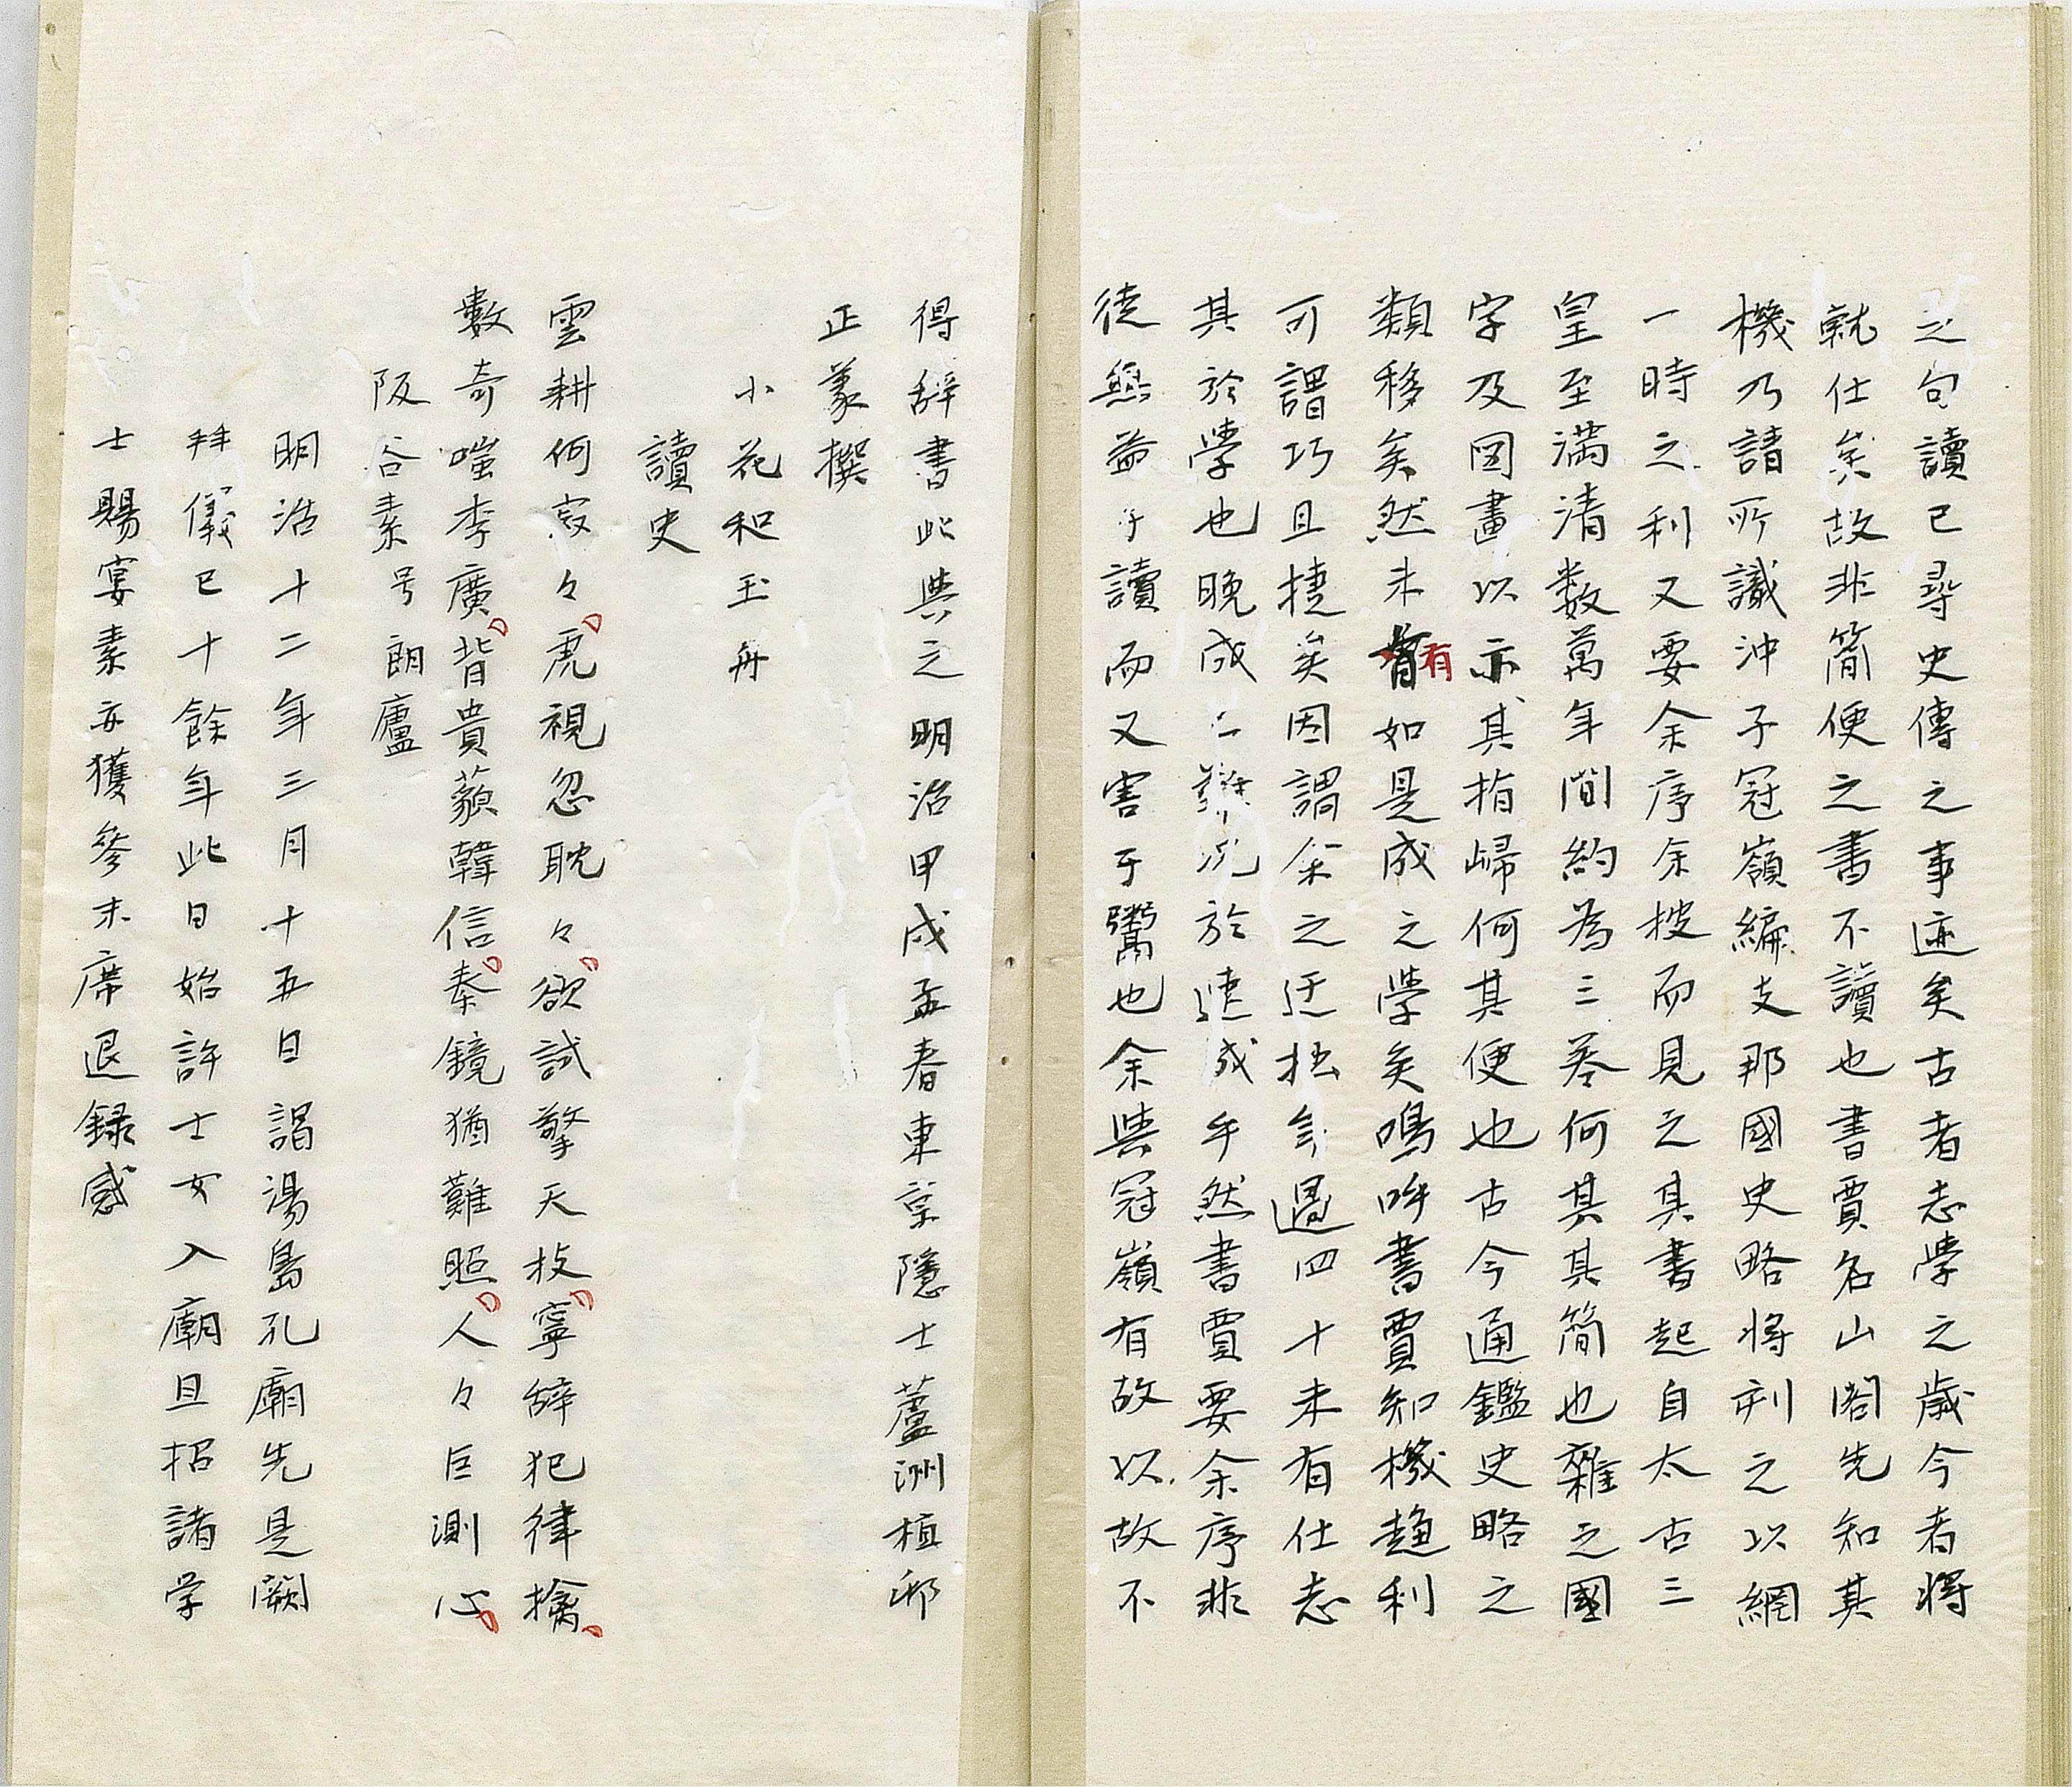 之句讀已尋史傳之事迹矣古者志學之歳今者將
就仕矣故非簡便之書不讀也書賈名山閣先知其
機乃請所識沖子冠嶺編支那國史略将刋之以網
一時之利又要余序余披而見之其書起自太古三
皇至満清数萬年間約為三巻何其其簡也雜之國
字及図畫以示其指歸何其便也古今通鑑史略之
類移矣然未有如是成之學矣嗚呼書賈知機趨利
可謂巧且捷矣因謂余之迂拙年過四十未有仕志
其於學也晩成亡難況於速成乎然書賈要余序非
徒無益于讀而又害于鬻也余與冠嶺有故以故不
得辞書此與之明治甲戌孟春東京隱士蘆洲植邨
正義撰
小花和玉舟
讀史
雲耕何寂々虎視忽眈々欲試擎天枝寧辞犯律擒
數奇嗤李廣背貴藐韓信秦鏡猶難照人々叵測心
阪谷素号朗廬
明治十二年三月十五日謁湯島孔廟先是闕
拜儀已十餘年此日始許士女入廟且招諸学
士賜宴素亦獲参末席退録感